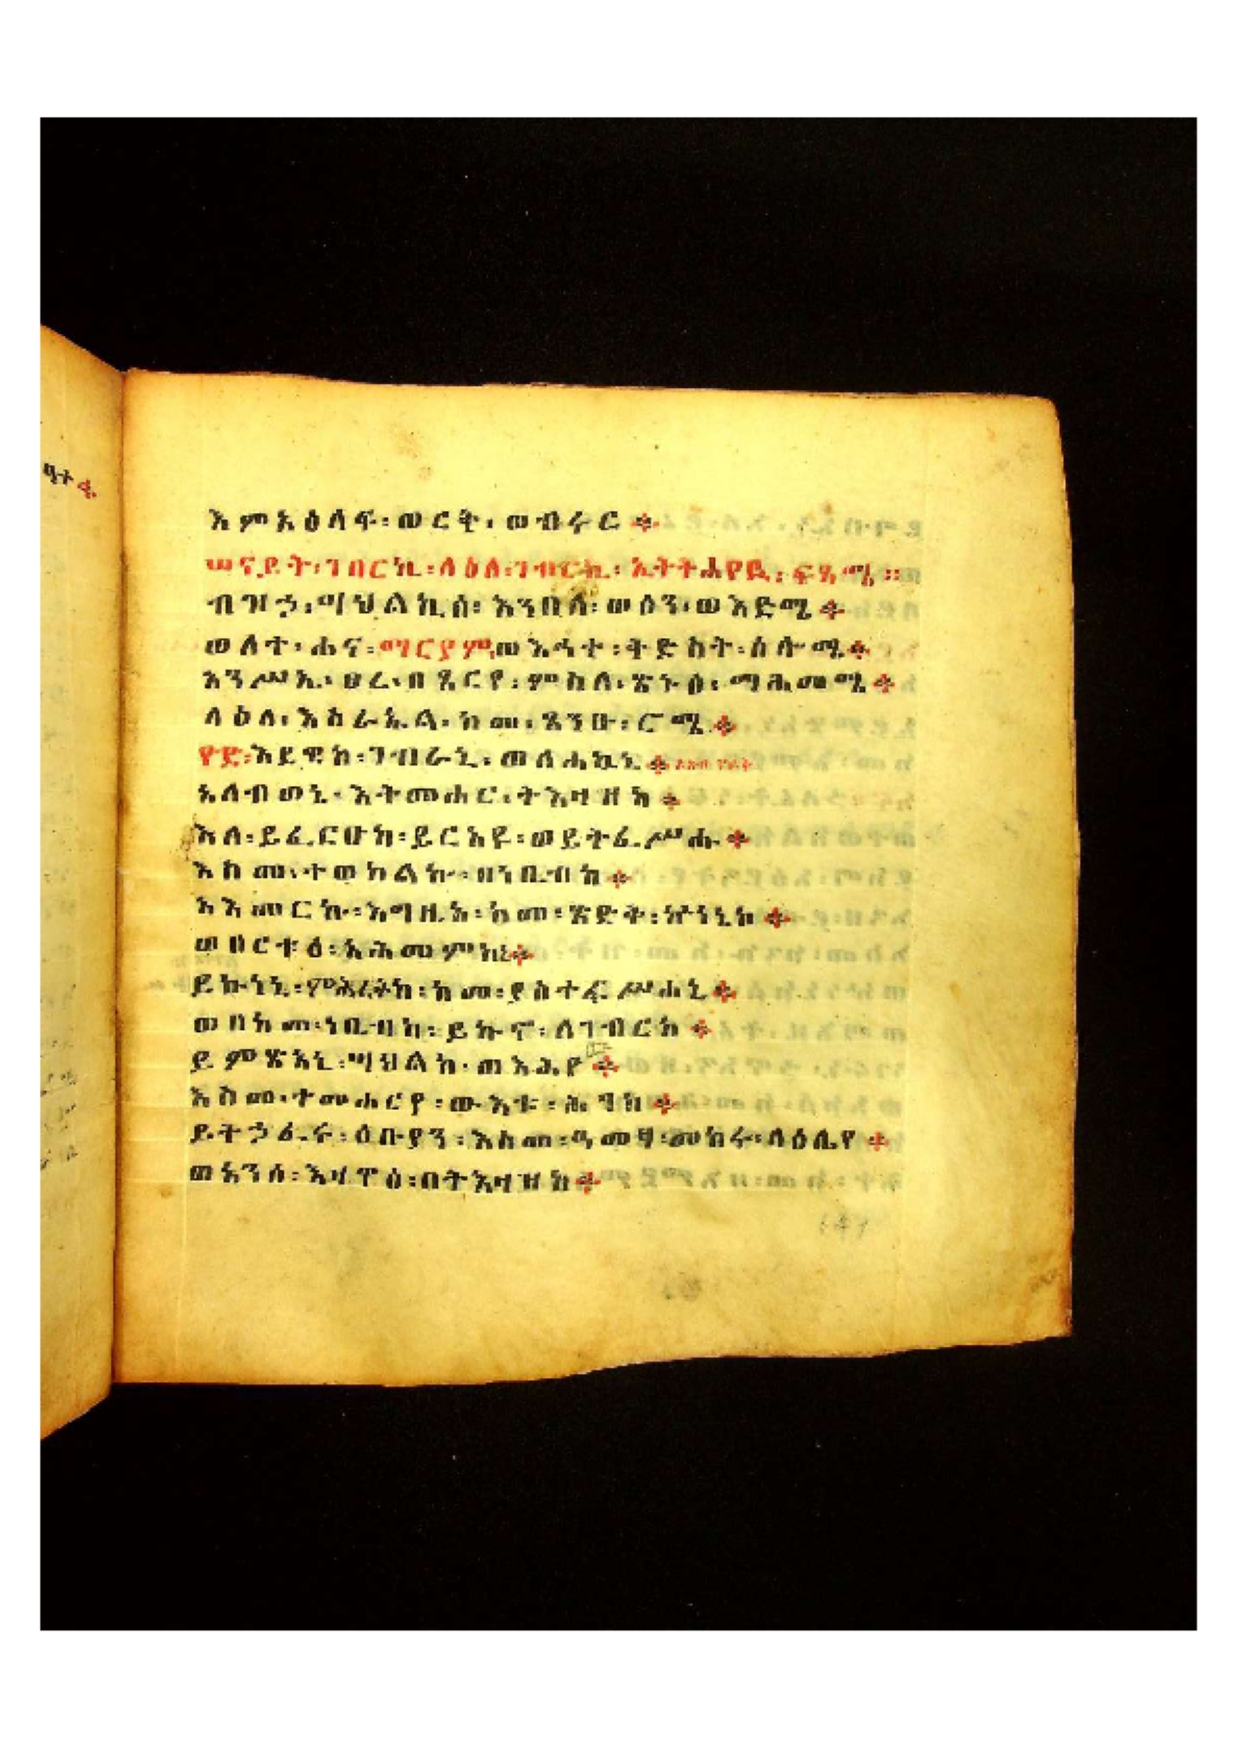 እምአዕላፍ፡ ወርቅ፡ ወብሩር ።
ሠናይት፡ ገበርኪ፡ ላዕለ፡ ገብርኪ፡
ብዝኃ፡ ሣህልኪሰ፡ እንበለ፡ ወሰን፡ ወአድሜ ።
ወለተ፡ ሐና፡ ማርያም፡ ወእኅተ፡
ምስለ፡ ጼኑፅ፡
ላዕለ፡ እስራኤል፡ ከመ፡
እደዊከ፡ ገብራኒ፡ ወለሐኳኒ ።
አለብወኒ፡ እትመሐር፡ ትእዛዘከ ።
እለ፡ ይፈርሁከ፡ ይርአዩ፡ ወይትፈሥሑ ።
እስመ፡ ተወከልኩ፡ በነቢብከ ።
አእመርኩ፡ እግዚኦ፡ ከመ፡ ጽድቅ፡ ኵነኔከ ።
ወበርቱዕ፡ አሕመምከኒ ።
ይኩነኒ፡ ምሕረትከ፡ ከመ፡ ያስተፈሥሐኒ ።
ወበከመ፡ ነቢብከ፡ ይኩኖ፡ ለገብርከ ።
ይምጽአኒ፡ ሣህልከ፡ ወእሕየው ።
እስመ፡ ተመሐርየ፡ ውእቱ፡ ሕግከ ።
ይትኃፈሩ፡ ዕቡያን፡ እስመ፡ ዓመፃ፡ መከሩ፡ ላዕሌየ ።
ወአንሰ፡ እዛዋዕ፡ በትእዛዝከ ።